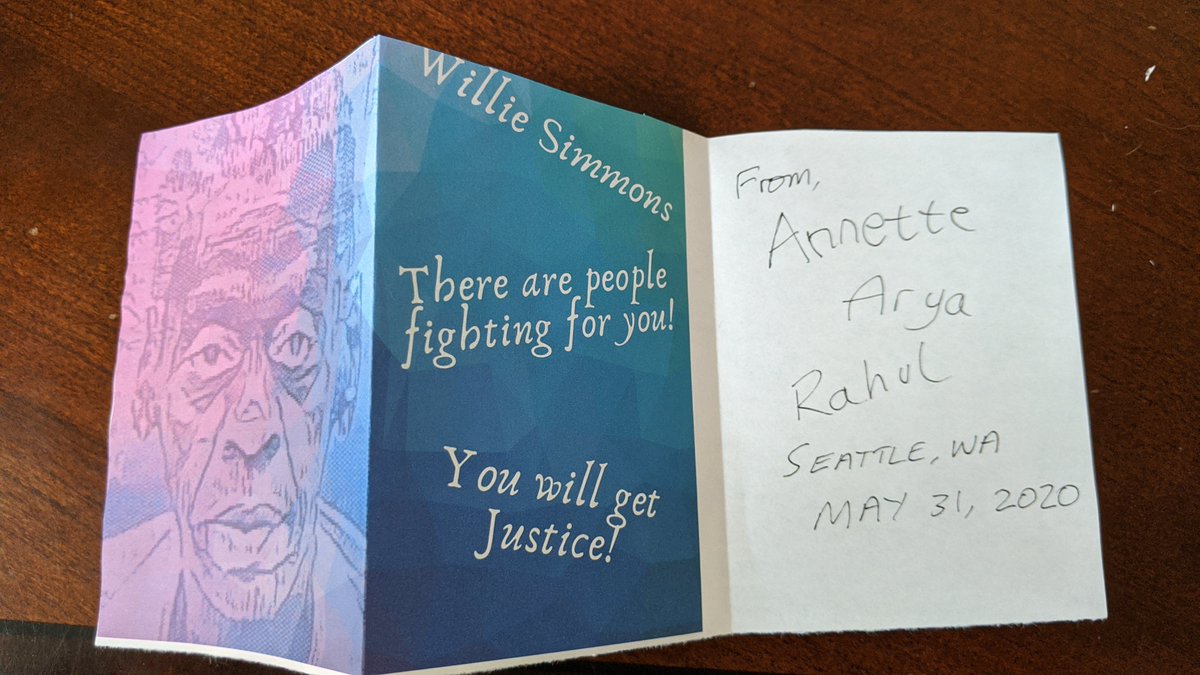 Willie Simmons
There are people
fighting for you!
You will get
Justice!
From,
Annette
Arya
Rahul
SEATTLE, WA
MAY 31, 2020